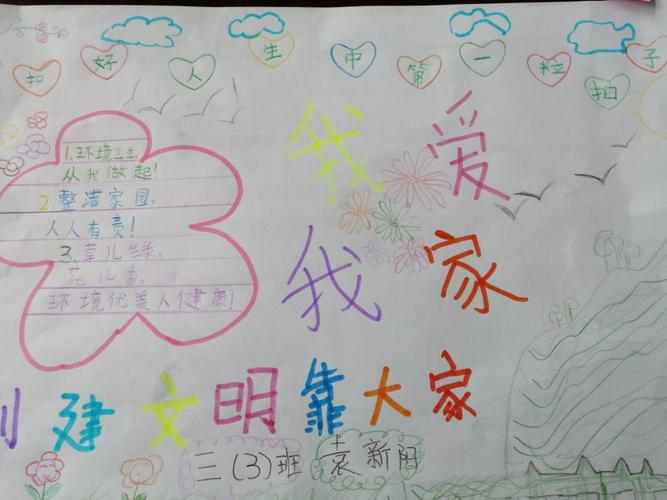 扣好人生中第一粒扣子
我爱
我家
1.环境卫生
从我做起!
2.整洁家园,
人人有责!
3.草儿绿,
花儿香,
环境优美人健康!
创建文明靠大家
三(3)班 袁新阳